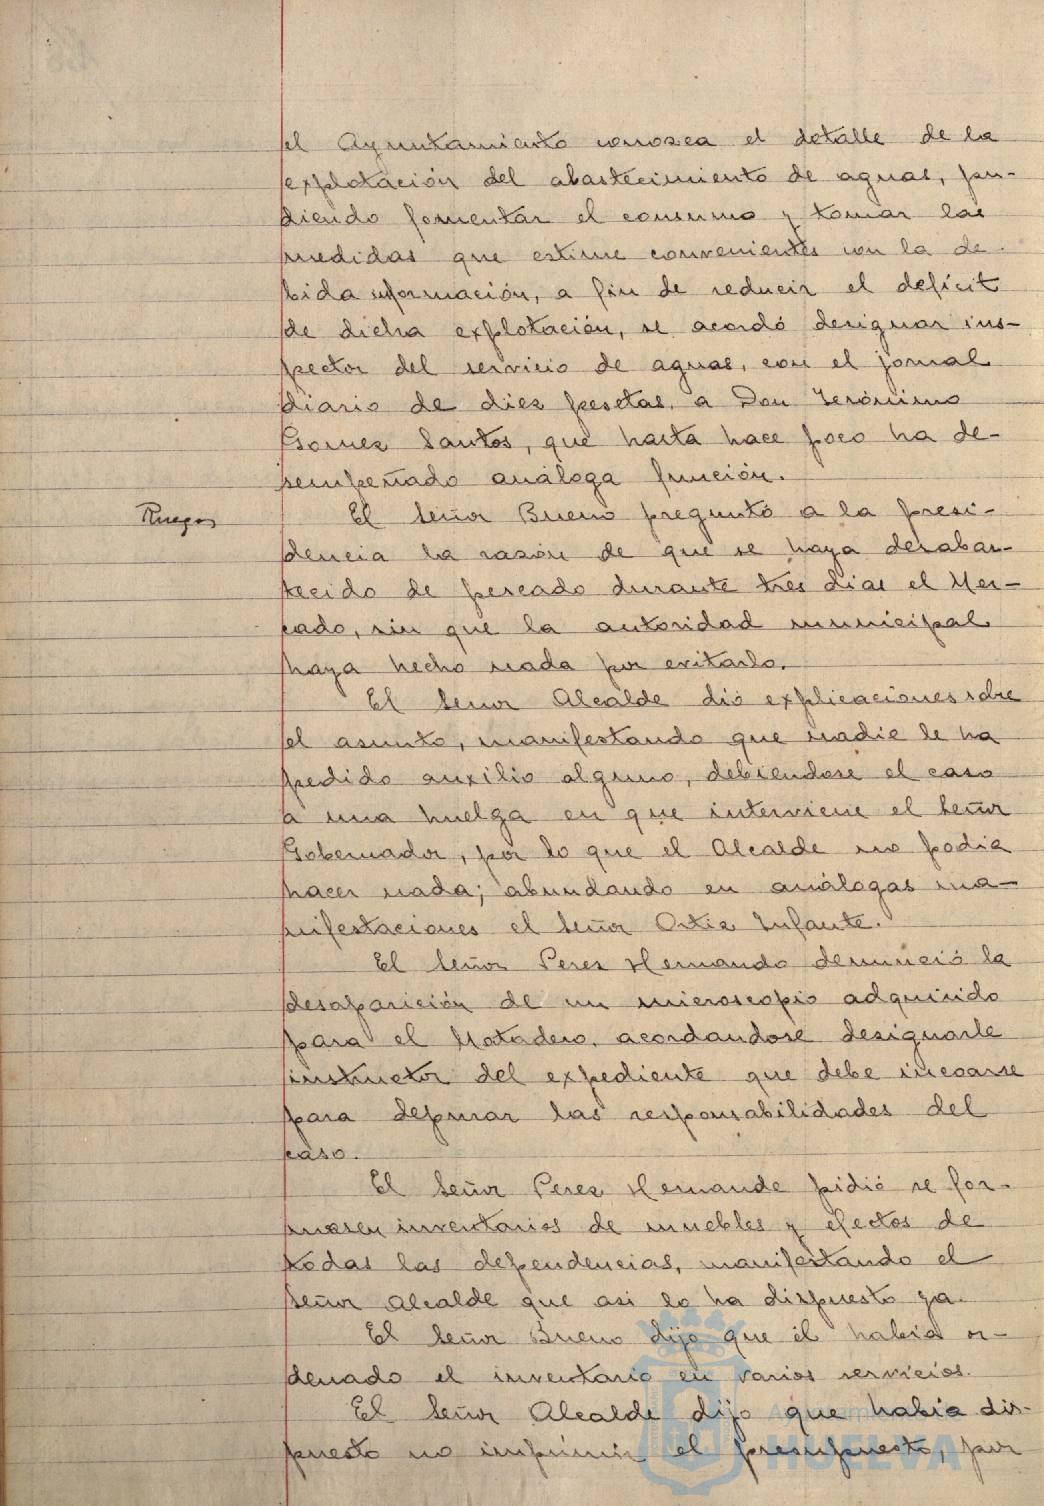 el Ayuntamiento conozca el detalle de la
explotación del abastecimiento de aguas, pu-
diendo fomentar el consumo y tomar las
medidas que estime convenientes con la de-
bida información, a fin de reducir el deficit
de dicha explotación, se acordó designar ins-
pector del servicio de aguas, con el jornal
diario de diez pesetas, a Don Jerónimo
Gomez Santos, que hasta hace poco ha de-
sempeñado análoga función.
Ruegos
El Señor Bueno preguntó a la presi-
dencia la razón de que se haya desabas-
tecido de pescado durante tres dias el Mer-
cado, sin que la autoridad municipal
haya hecho nada por evitarlo.
El Señor Alcalde dió explicaciones sobre
el asunto, manifestando que nadie le ha
pedido auxilio alguno, debiendose el caso
a una huelga en que interviene el Señor
Gobernador, por lo que el Alcalde no podia
hacer nada; abundando en análogas ma-
nifestaciones el Señor Ortiz Infante.
El Señor Perez Hernando denunció la
desaparición de un microscopio adquirido
para el Matadero, acordandose designarle
instructor del expediente que debe incoarse
para depurar las responsabilidades del
caso.
El Señor Perez Hernande pidió se for-
masen inventarios de muebles y efectos de
todas las dependencias, manifestando el
Señor Alcalde que asi lo ha dispuesto ya.
El Señor Bueno dijo que él habia or-
denado el inventario en varios servicios.
El Señor Alcalde dijo que habia dis-
puesto no imprimir el presupuesto, por
Ayuntamiento
HUELVA